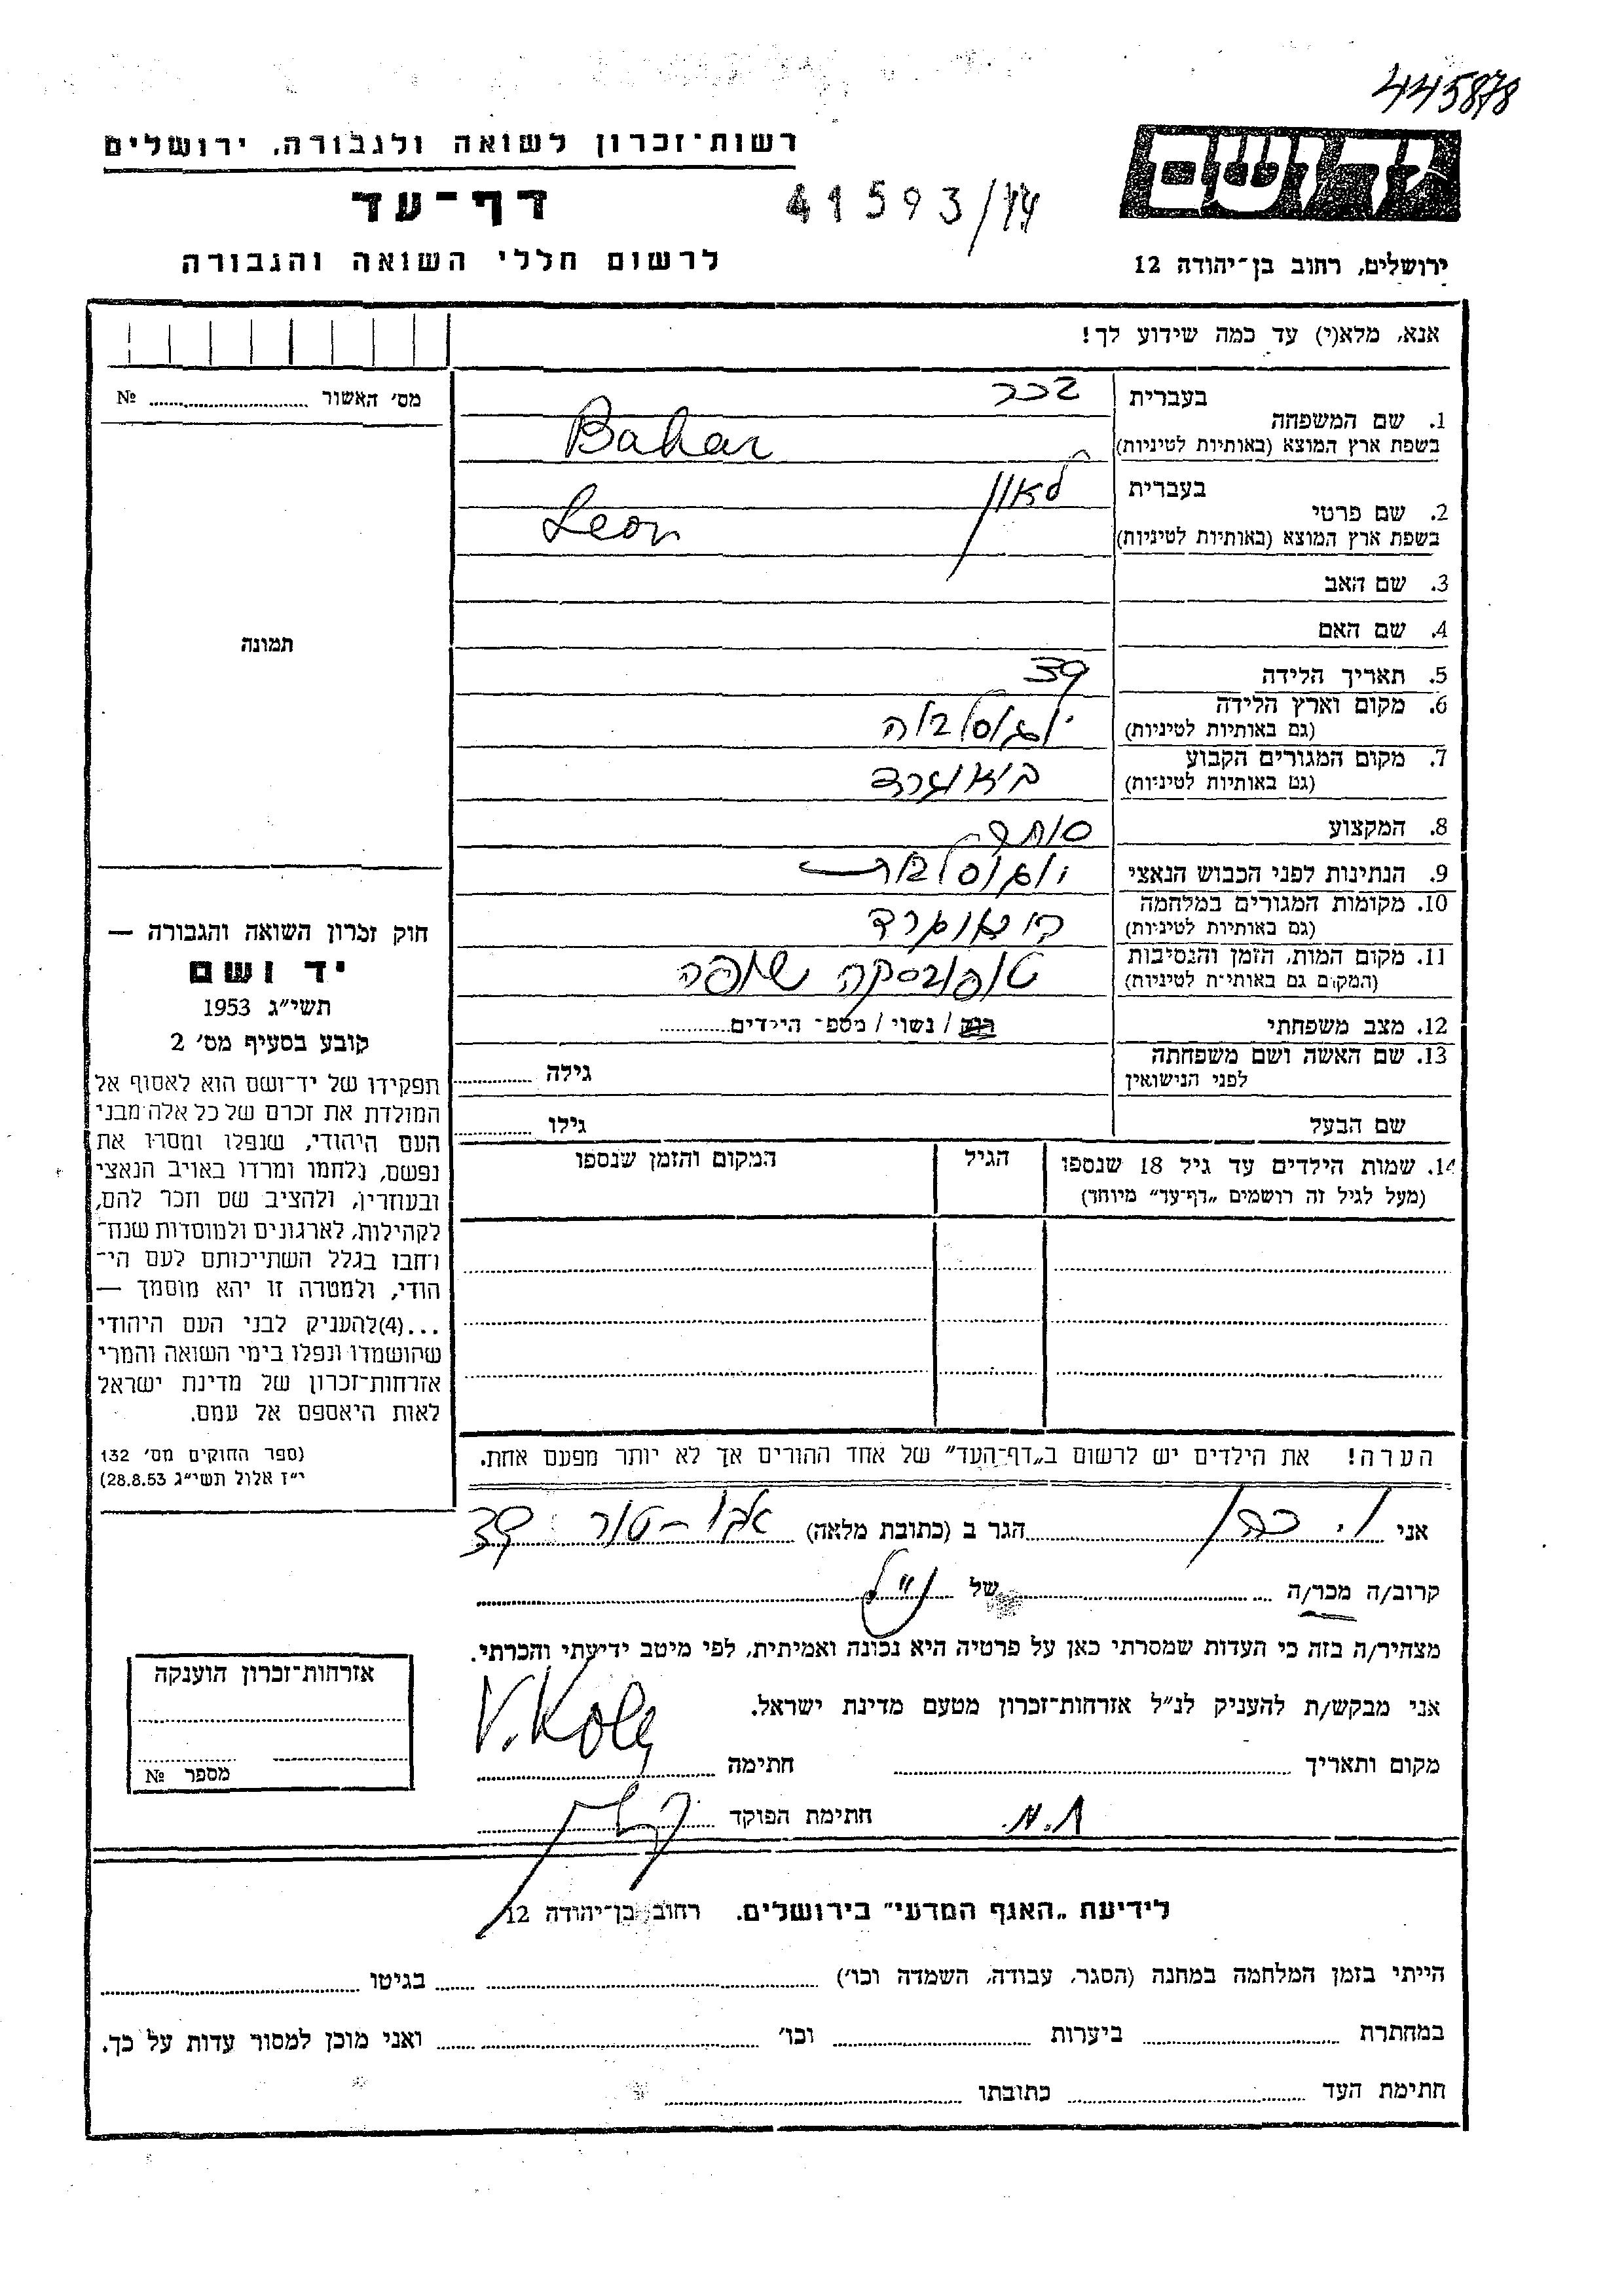 445878
יד ושם
רשות-זכרון לשואה ולגבורה, ירושלים
דף-עד
41593/44
לרשום חללי השואה והגבורה
ירושלים, רחוב בן-יהודה 12
אנא, מלא(י) עד כמה שידוע לך!
מס׳ האשור ........ №
תמונה
1. שם המשפחה
בעברית בכר
בשפת ארץ המוצא (באותיות לטיניות) Bahar
2. שם פרטי
בעברית לאון
בשפת ארץ המוצא (באותיות לטיניות) Leon
3. שם האב
4. שם האם
5. תאריך הלידה 39
6. מקום וארץ הלידה יוגוסלביה
(גם באותיות לטיניות)
7. מקום המגורים הקבוע ביאוגרד
(גם באותיות לטיניות)
8. המקצוע סוחר
9. הנתינות לפני הכבוש הנאצי יוגוסלבית
10. מקומות המגורים במלחמה ביאוגרד
(גם באותיות לטיניות)
11. מקום המות, הזמן והנסיבות טופובסקה שופה
(המקום גם באותיות לטיניות)
12. מצב משפחתי רוק / נשוי / מספר הילדים
13. שם האשה ושם משפחתה גילה
לפני הנישואין
שם הבעל גילו
14. שמות הילדים עד גיל 18 שנספו הגיל המקום והזמן שנספו
(מעל לגיל זה רושמים „דף-עד” מיוחד)
הערה! את הילדים יש לרשום ב„דף-העד” של אחד ההורים אך לא יותר מפעם אחת.
חוק זכרון השואה והגבורה —
יד ושם
תשי״ג 1953
קובע בסעיף מס׳ 2
תפקידו של יד-ושם הוא לאסוף אל
המולדת את זכרם של כל אלה מבני
העם היהודי, שנפלו ומסרו את
נפשם, נלחמו ומרדו באויב הנאצי
ובעוזריו, ולהציב שם וזכר להם,
לקהילות, לארגונים ולמוסדות שנח-
רחבו בגלל השתייכותם לעם הי-
הודי, ולמטרה זו יהא מוסמך —
...(4) להעניק לבני העם היהודי
שהושמדו ונפלו בימי השואה והמרי
אזרחות-זכרון של מדינת ישראל
לאות היאספם אל עמם.
(ספר החוקים מס׳ 132
י״ז אלול תשי״ג 28.8.53)
אני הגר ב (כתובת מלאה) אבו-טור 39
קרוב/ה מכר/ה של הנ״ל
מצהיר/ה בזה כי העדות שמסרתי כאן על פרטיה היא נכונה ואמיתית, לפי מיטב ידיעתי והכרתי.
אני מבקש/ת להעניק לנ״ל אזרחות-זכרון מטעם מדינת ישראל.
מקום ותאריך חתימה
חתימת הפוקד
אזרחות-זכרון הוענקה
מספר №
לידיעת „האגף המדעי” בירושלים. רחוב בן-יהודה 12
הייתי בזמן המלחמה במחנה (הסגר, עבודה, השמדה וכו׳) בגיטו
במחתרת ביערות וכו׳ ואני מוכן למסור עדות על כך.
חתימת העד כתובתו